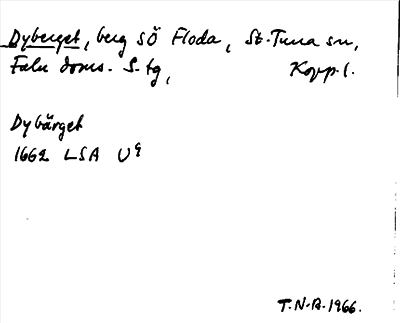 Dyberget, berg SÖ Floda, St. Tuna sn,
Falu doms. S. tg, Kopp. l.
Dybärget
1662 LSA U9
T.N-B. 1966.